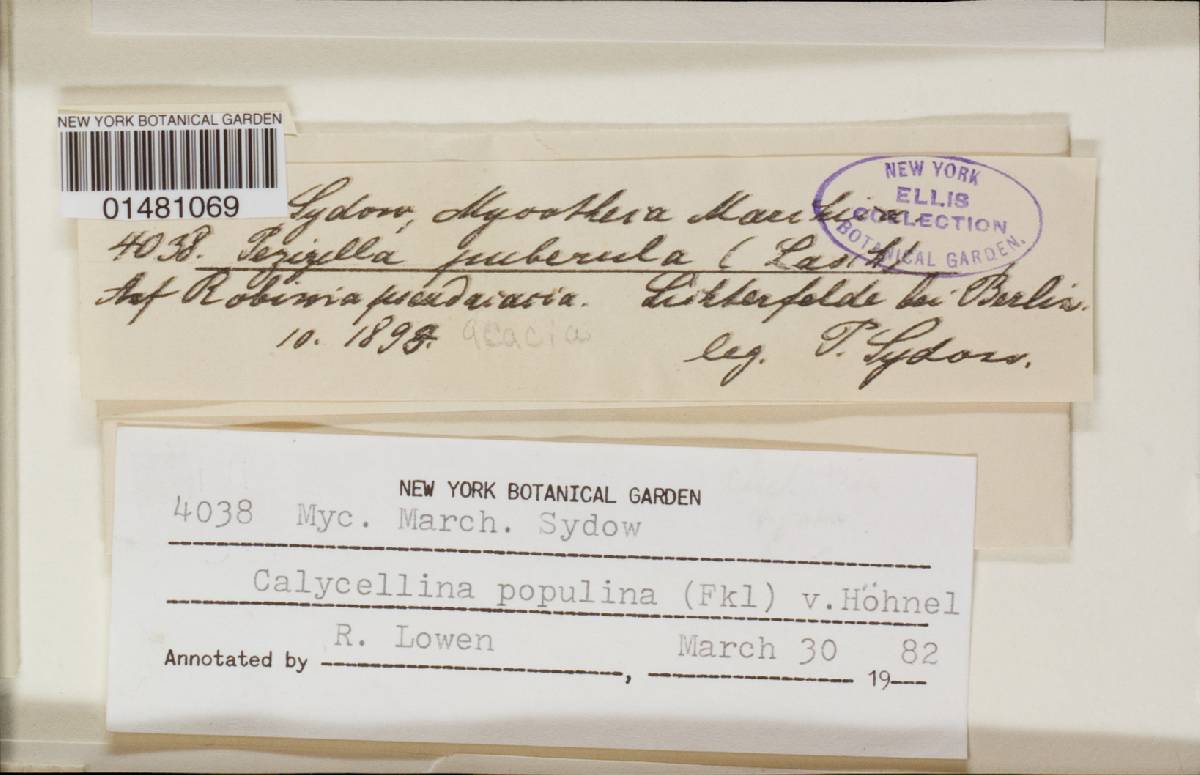 NEW YORK BOTANICAL GARDEN
01481069
NEW YORK
ELLIS
COLLECTION
BOTANICAL GARDEN.
Sydow, Mycotheca Marchica
4038. Pezizella puberula (Lasch)
Auf Robinia pseudacacia. Lichterfelde bei Berlin.
10. 1893. acacia
leg. P. Sydow.
NEW YORK BOTANICAL GARDEN
4038 Myc. March. Sydow
Calycellina populina (Fkl) v.Höhnel
R. Lowen March 30 82
Annotated by , 19